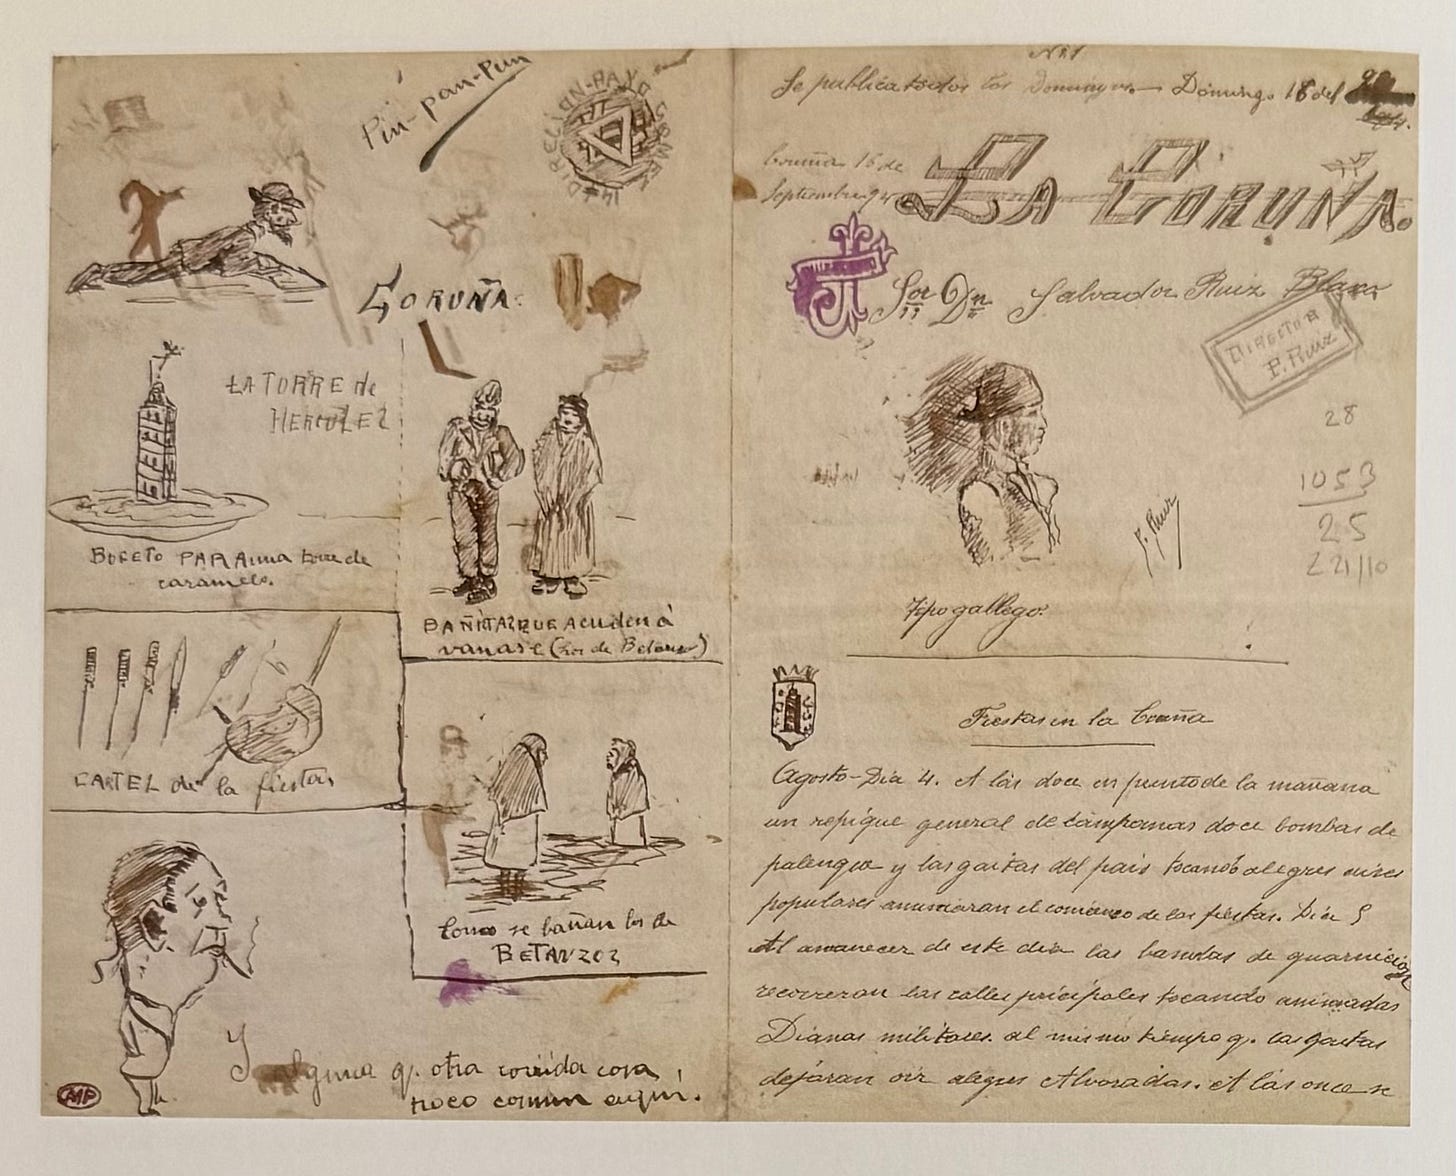 Pin-pan-Pun
CORUÑA.
LA TORRE de
HERCULEZ
BOCETO PARA una torre de
caramelo.
BAÑITAZ QUE Acuden á
vanarse (los de Betanzos)
CARTEL de la fiestas
Como se bañan los de
BETANZOZ
Y alguna q. otra corrida cosa
poco comun aquí.
MP
Nº 1
Se publica todos los Domingos — Domingo 16 del
Coruña 16 de
Septiembre 94
LA CORUÑA.
Sor Dn Salvador Ruiz Blasco
DIRECTOR
P. Ruiz
28
1053
25
P. Ruiz
Tipo gallego.
Fiestas en la Coruña
Agosto - Dia 4. A las doce en punto de la mañana
un repique general de campanas doce bombas de
palenque y las gaitas del pais tocando alegres aires
populares anunciaran el comienzo de las fiestas. Dia 5
Al amanecer de este dia las bandas de guarnicion
recorreran las calles pricipales tocando animadas
Dianas militares. al mismo tiempo q. las gaitas
dejaran oir alegres Alvoradas. A las once se